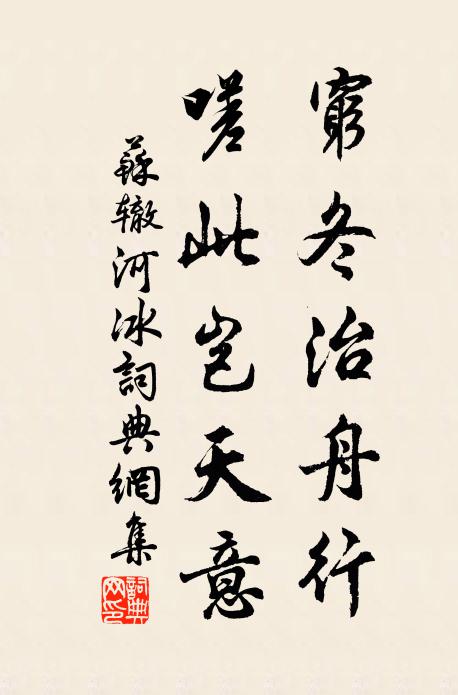 窮冬治舟行
嗟此豈天意
蘇辙河冰詞典網集
詞典网印